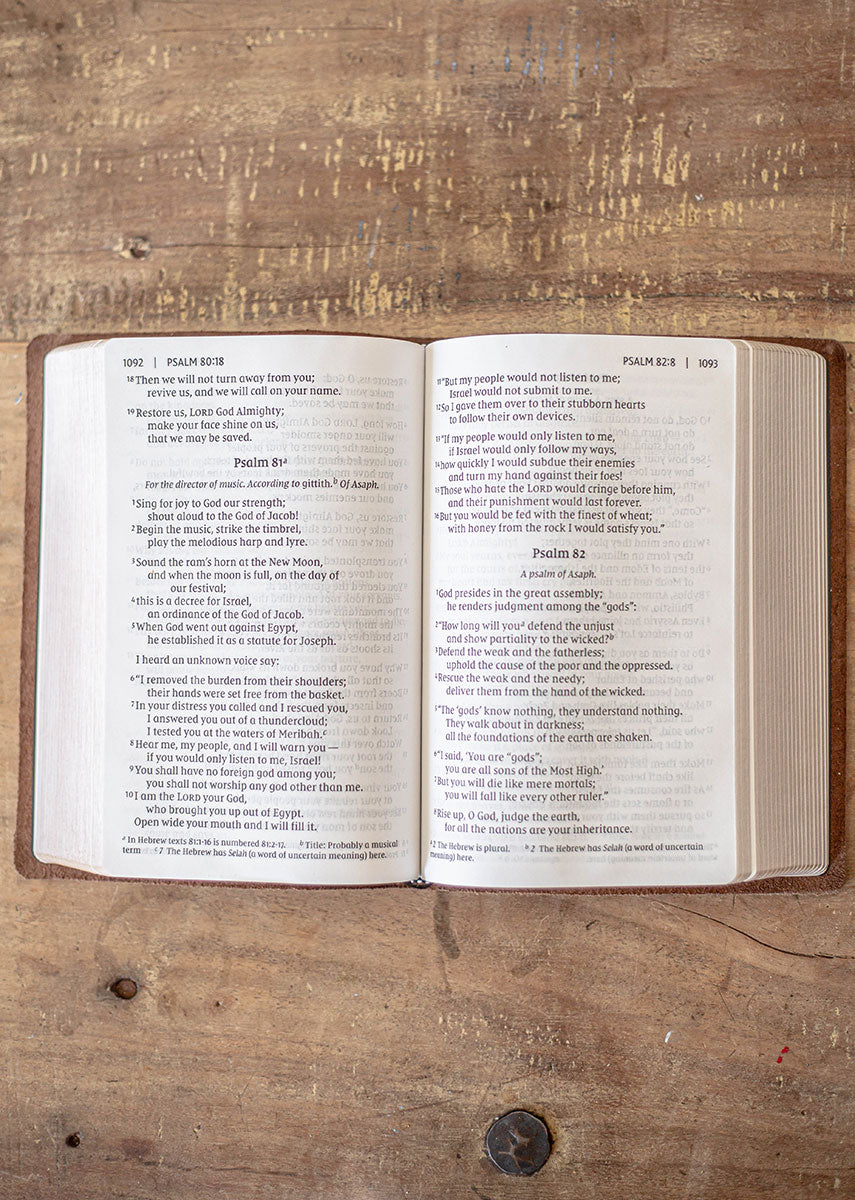 1092 | PSALM 80:18
18Then we will not turn away from you;
revive us, and we will call on your name.
19Restore us, LORD God Almighty;
make your face shine on us,
that we may be saved.
Psalm 81a
For the director of music. According to gittith.b Of Asaph.
1Sing for joy to God our strength;
shout aloud to the God of Jacob!
2Begin the music, strike the timbrel,
play the melodious harp and lyre.
3Sound the ram's horn at the New Moon,
and when the moon is full, on the day of
our festival;
4this is a decree for Israel,
an ordinance of the God of Jacob.
5When God went out against Egypt,
he established it as a statute for Joseph.
I heard an unknown voice say:
6“I removed the burden from their shoulders;
their hands were set free from the basket.
7In your distress you called and I rescued you,
I answered you out of a thundercloud;
I tested you at the waters of Meribah.c
8Hear me, my people, and I will warn you —
if you would only listen to me, Israel!
9You shall have no foreign god among you;
you shall not worship any god other than me.
10I am the LORD your God,
who brought you up out of Egypt.
Open wide your mouth and I will fill it.
a In Hebrew texts 81:1-16 is numbered 81:2-17. b Title: Probably a musical
term c 7 The Hebrew has Selah (a word of uncertain meaning) here.
PSALM 82:8 | 1093
11“But my people would not listen to me;
Israel would not submit to me.
12So I gave them over to their stubborn hearts
to follow their own devices.
13“If my people would only listen to me,
if Israel would only follow my ways,
14how quickly I would subdue their enemies
and turn my hand against their foes!
15Those who hate the LORD would cringe before him,
and their punishment would last forever.
16But you would be fed with the finest of wheat;
with honey from the rock I would satisfy you.”
Psalm 82
A psalm of Asaph.
1God presides in the great assembly;
he renders judgment among the “gods”:
2“How long will youa defend the unjust
and show partiality to the wicked?b
3Defend the weak and the fatherless;
uphold the cause of the poor and the oppressed.
4Rescue the weak and the needy;
deliver them from the hand of the wicked.
5“The ‘gods’ know nothing, they understand nothing.
They walk about in darkness;
all the foundations of the earth are shaken.
6“I said, ‘You are “gods”;
you are all sons of the Most High.’
7But you will die like mere mortals;
you will fall like every other ruler.”
8Rise up, O God, judge the earth,
for all the nations are your inheritance.
a 2 The Hebrew is plural. b 2 The Hebrew has Selah (a word of uncertain
meaning) here.